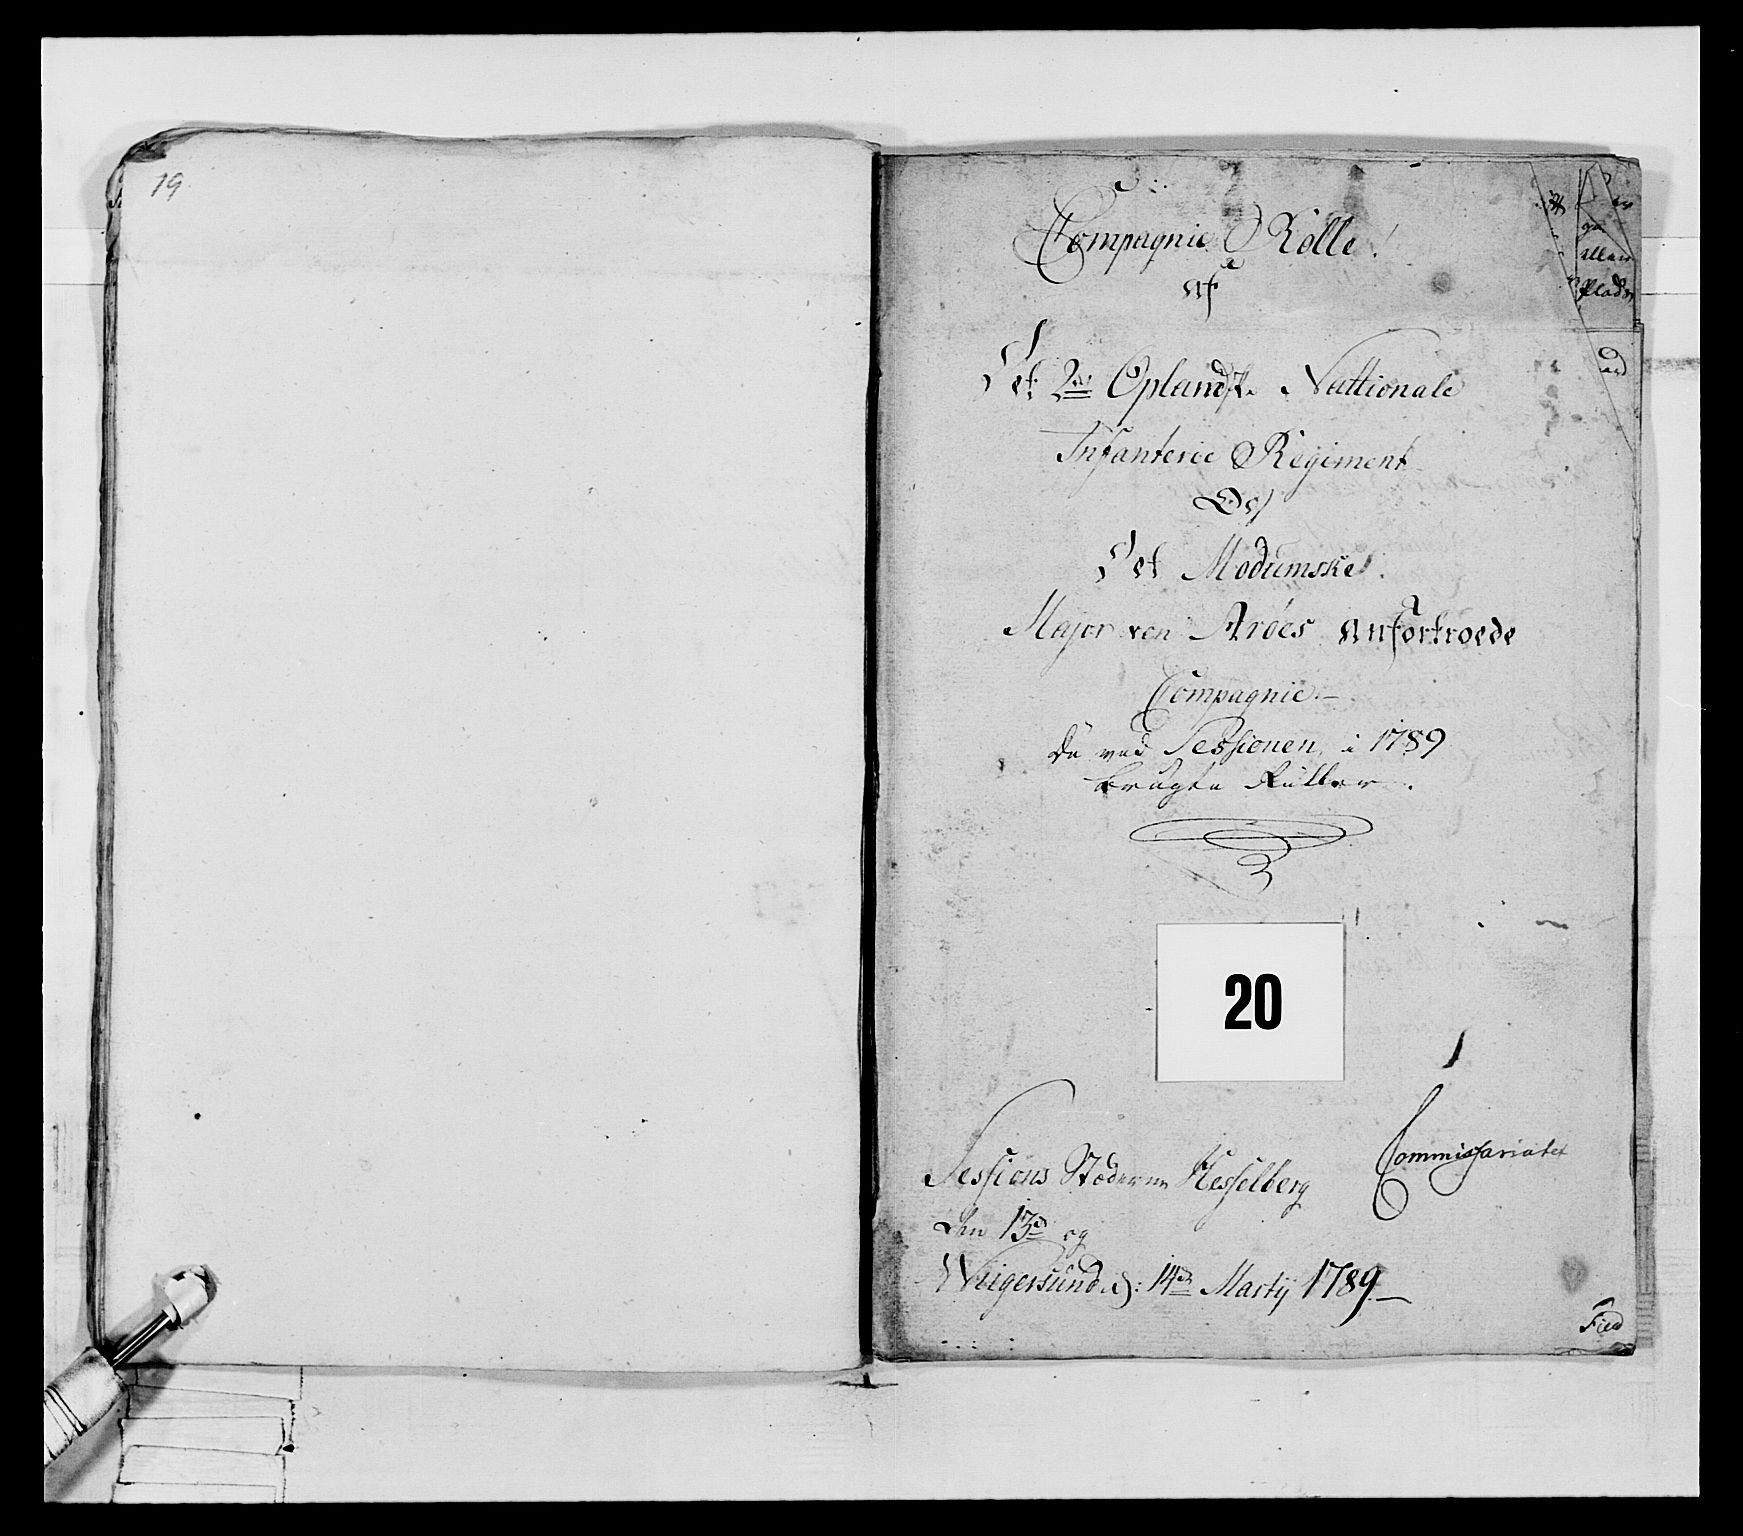 19
Compagnie Rolle
af
Det 2det Oplandske Nattionale
Infanterie Regiment
Det Modumske
Major von Aröes anfortroede
Compagnie.
De ved Sessionen i 1789
brugte Ruller.
20
Sessions Stæderne Hesselberg
Commissariatet
den 13de og
Wiigersund d: 14de Martij 1789